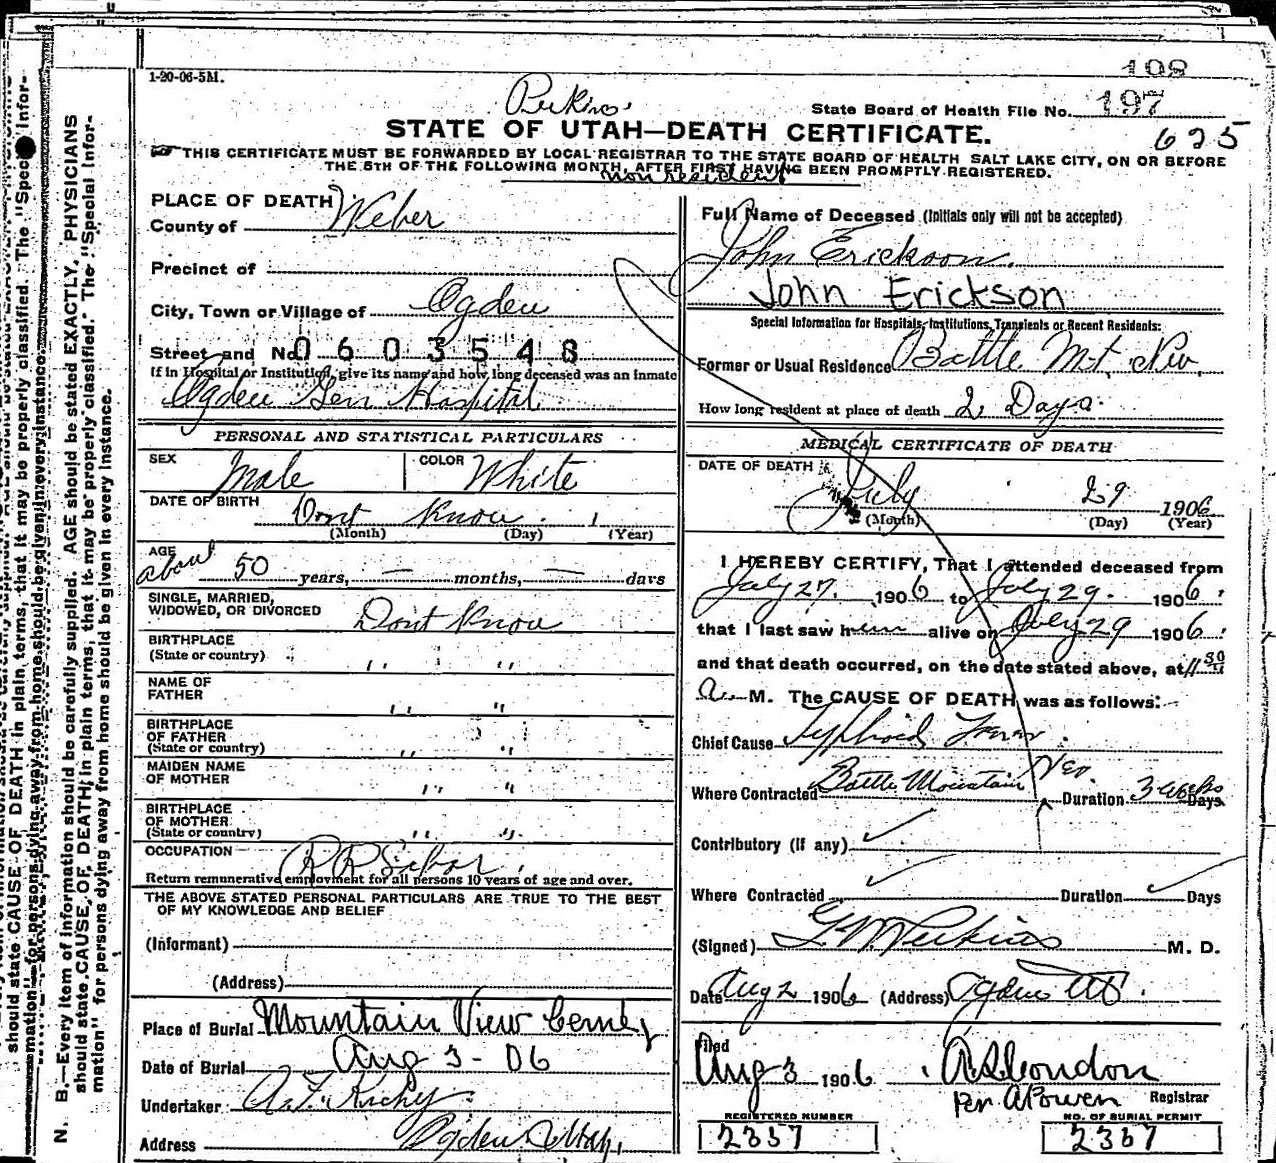 108
1-20-06-5M.
Perkins
State Board of Health File No. 197
STATE OF UTAH—DEATH CERTIFICATE.
625
THIS CERTIFICATE MUST BE FORWARDED BY LOCAL REGISTRAR TO THE STATE BOARD OF HEALTH SALT LAKE CITY, ON OR BEFORE
THE 5TH OF THE FOLLOWING MONTH, AFTER FIRST HAVING BEEN PROMPTLY REGISTERED.
Non resident
PLACE OF DEATH
County of Weber
Precinct of
City, Town or Village of Ogden
Street and No. 0603548
If in Hospital or Institution, give its name and how long deceased was an inmate
Ogden Gen Hospital
PERSONAL AND STATISTICAL PARTICULARS
SEX Male COLOR White
DATE OF BIRTH Dont Know
(Month) (Day) (Year)
AGE about 50 years, — months, — days
SINGLE, MARRIED,
WIDOWED, OR DIVORCED Dont Know
BIRTHPLACE
(State or country) " "
NAME OF
FATHER " "
BIRTHPLACE
OF FATHER
(State or country) " "
MAIDEN NAME
OF MOTHER " "
BIRTHPLACE
OF MOTHER
(State or country) " "
OCCUPATION R R
Return remunerative employment for all persons 10 years of age and over.
THE ABOVE STATED PERSONAL PARTICULARS ARE TRUE TO THE BEST
OF MY KNOWLEDGE AND BELIEF
(Informant)
(Address)
Place of Burial Mountain View Cemty
Date of Burial Aug 3-06
Undertaker
Address Ogden Utah,
Full Name of Deceased (Initials only will not be accepted)
John Erickson.
John Erickson
Special Information for Hospitals, Institutions, Transients or Recent Residents:
Former or Usual Residence Battle Mt. Nev.
How long resident at place of death 2 Days.
MEDICAL CERTIFICATE OF DEATH
DATE OF DEATH July 29 1906
(Month) (Day) (Year)
I HEREBY CERTIFY, That I attended deceased from
July 27. 1906 to July 29. 1906.
that I last saw him alive on July 29 1906.
and that death occurred, on the date stated above, at 11 50
a. M. The CAUSE OF DEATH was as follows:
Chief Cause Typhoid Fever.
Where Contracted Battle Mountain Nev. Duration 3 weeks Days.
Contributory (if any)
Where Contracted Duration Days
(Signed) G W Perkins M. D.
Date Aug 2 1906 (Address) Ogden Ut.
Filed
Aug 3 1906 A S Condon
per A Powen Registrar
REGISTERED NUMBER
2337
NO. OF BURIAL PERMIT
2337
N. B.—Every item of information should be carefully supplied. AGE should be stated EXACTLY, PHYSICIANS
should state CAUSE OF DEATH in plain terms, that it may be properly classified. The "Special Infor-
mation" for persons dying away from home should be given in every instance.
should state CAUSE OF DEATH in plain terms, that it may be properly classified. The "Special Infor-
mation" for persons dying away from home should be given in every instance.